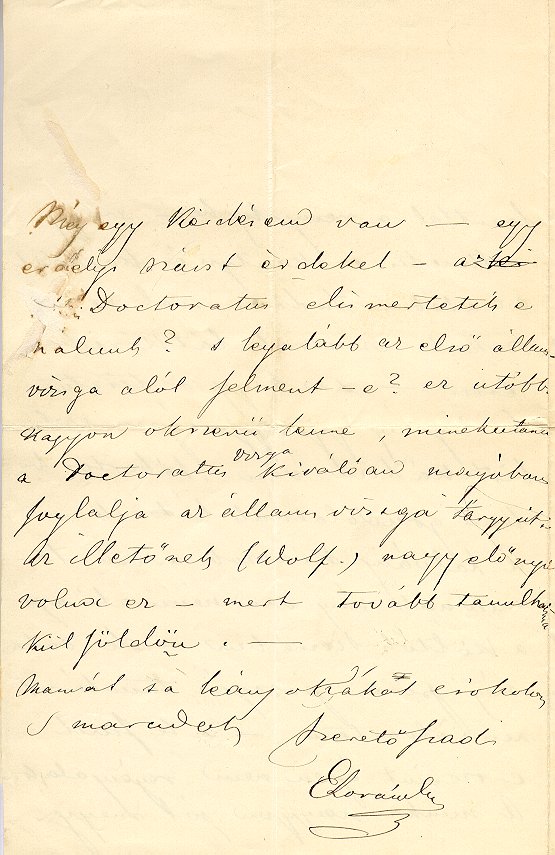 Még egy kérdésem van — egy
erdélyi szászt érdekel – a
Doctoratus elismertetik e
nálunk? s legalább az első állam
vizsga alól felment –e? ez utóbbi
nagyon okszerű lenne, minekutánna
a Doctoratus vizga kiválóan magában
foglalja az állam vizsga tárgyait.
az illetőnek (Wolf.) nagy előnye
volna ez – mert tovább tanulhatna
külföldön. —
Mamát s a leányokat csókolom
s maradok szerető fiad
ELoránd